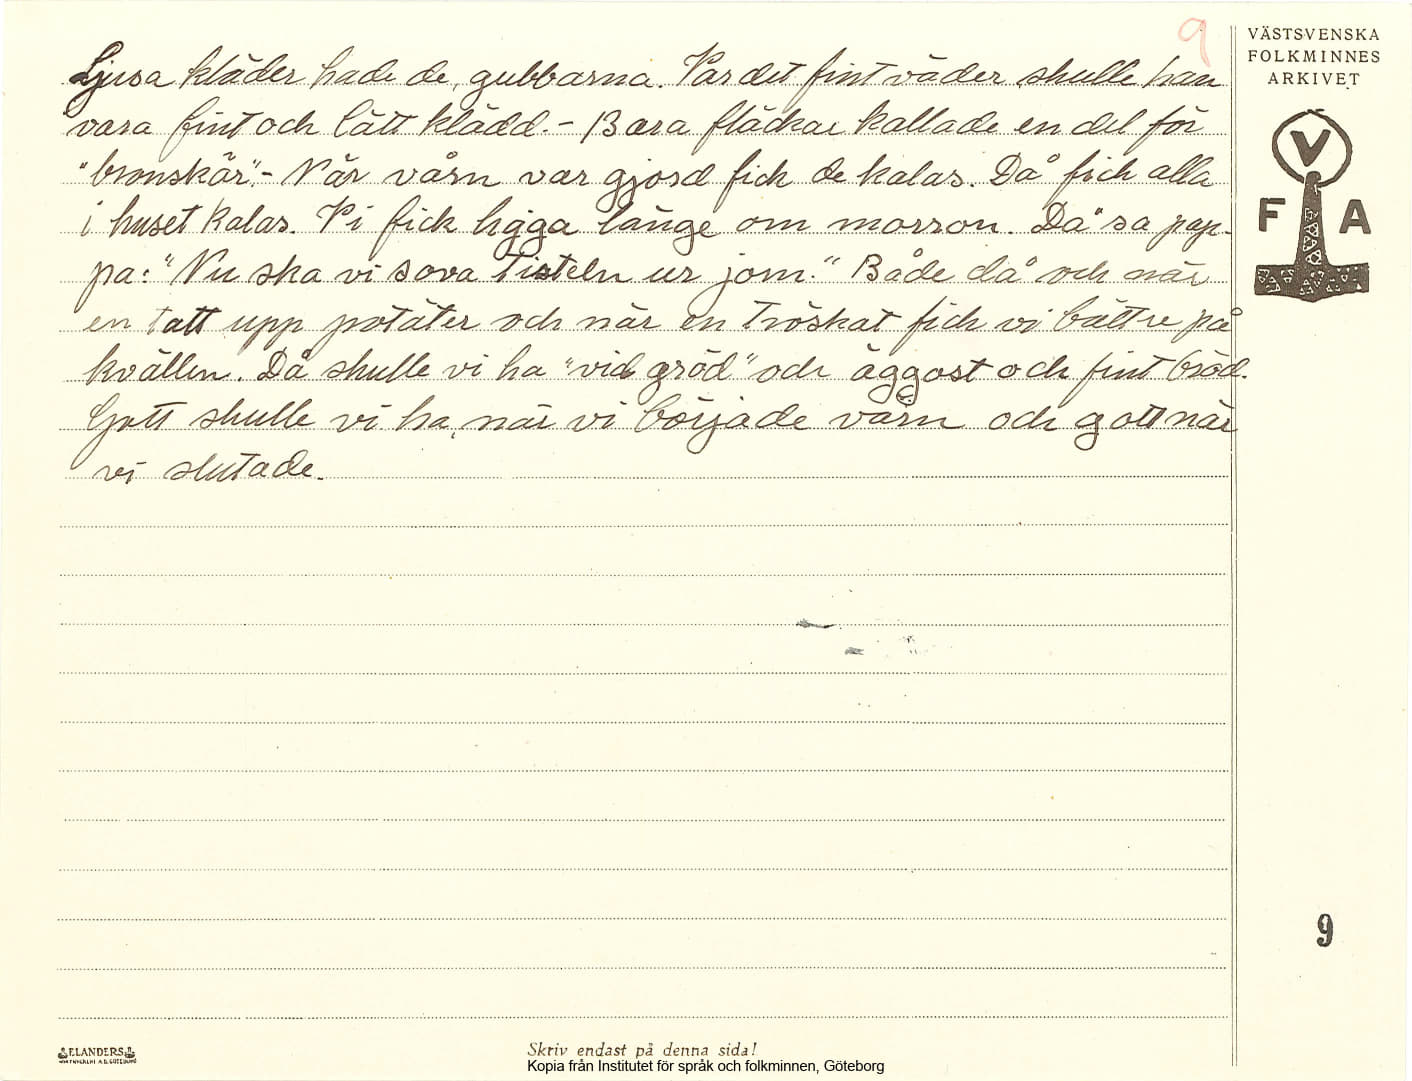 9
VÄSTSVENSKA
FOLKMINNES
ARKIVET
V
F A
Ljusa kläder hade de, gubbarna. Var det fint väder skulle han
vara fint och lätt klädd. - Bara fläckar kallade en del för
"bronskär". - När vårn var gjord fick de kalas. Då fick alla
i huset kalas. Vi fick ligga länge om morron. Då sa pap-
pa: "Nu ska vi sova Tisteln ur jorn." Både då och när
en tatt upp potäter och när en tröskat fick vi bättre på
kvällen. Då skulle vi ha "vid gröd" och äggost och fint bröd.
Gott skulle vi ha, när vi började vårn och gott när
vi slutade.
9
ELANDERS
Skriv endast på denna sida!
Kopia från Institutet för språk och folkminnen, Göteborg